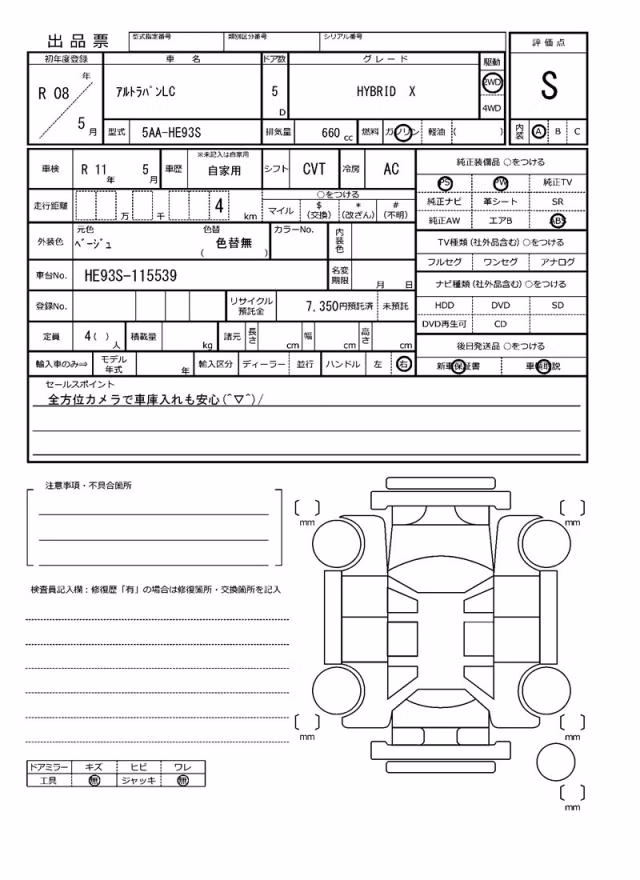 出品票
型式指定番号 類別区分番号 シリアル番号
評価点
初年度登録 車名 ドア数 グレード 駆動
R 08 年 5 月 アルトラパンLC 5 D HYBRID X 2WD 4WD
S
型式 5AA-HE93S 排気量 660 cc 燃料 ガソリン 軽油 ( )
内装 A B C
車検 R 11 年 5 月 車歴 ※未記入は自家用 自家用 シフト CVT 冷房 AC
純正装備品 ○をつける
PS PW 純正TV
純正ナビ 革シート SR
純正AW エアB ABS
走行距離 万 千 4 km
○をつける
マイル $(交換) *(改ざん) #(不明)
外装色 元色 ベージュ 色替 色替無 ( ) カラーNo. 内装色
TV種類(社外品含む)○をつける
フルセグ ワンセグ アナログ
車台No. HE93S-115539 名変期限 月 日
ナビ種類(社外品含む)○をつける
HDD DVD SD
DVD再生可 CD
登録No. リサイクル預託金 7,350円預託済 未預託
定員 4( ) 人 積載量 kg 諸元 長さ cm 幅 cm 高さ cm
後日発送品 ○をつける
新車保証書 車輌取説
輸入車のみ⇒ モデル年式 年 輸入区分 ディーラー 並行 ハンドル 左 右
セールスポイント
全方位カメラで車庫入れも安心(^▽^)/
注意事項・不具合箇所
検査員記入欄:修復歴「有」の場合は修復箇所・交換箇所を記入
mm
mm
mm
mm
mm
ドアミラー キズ ヒビ ワレ
工具 無 ジャッキ 無